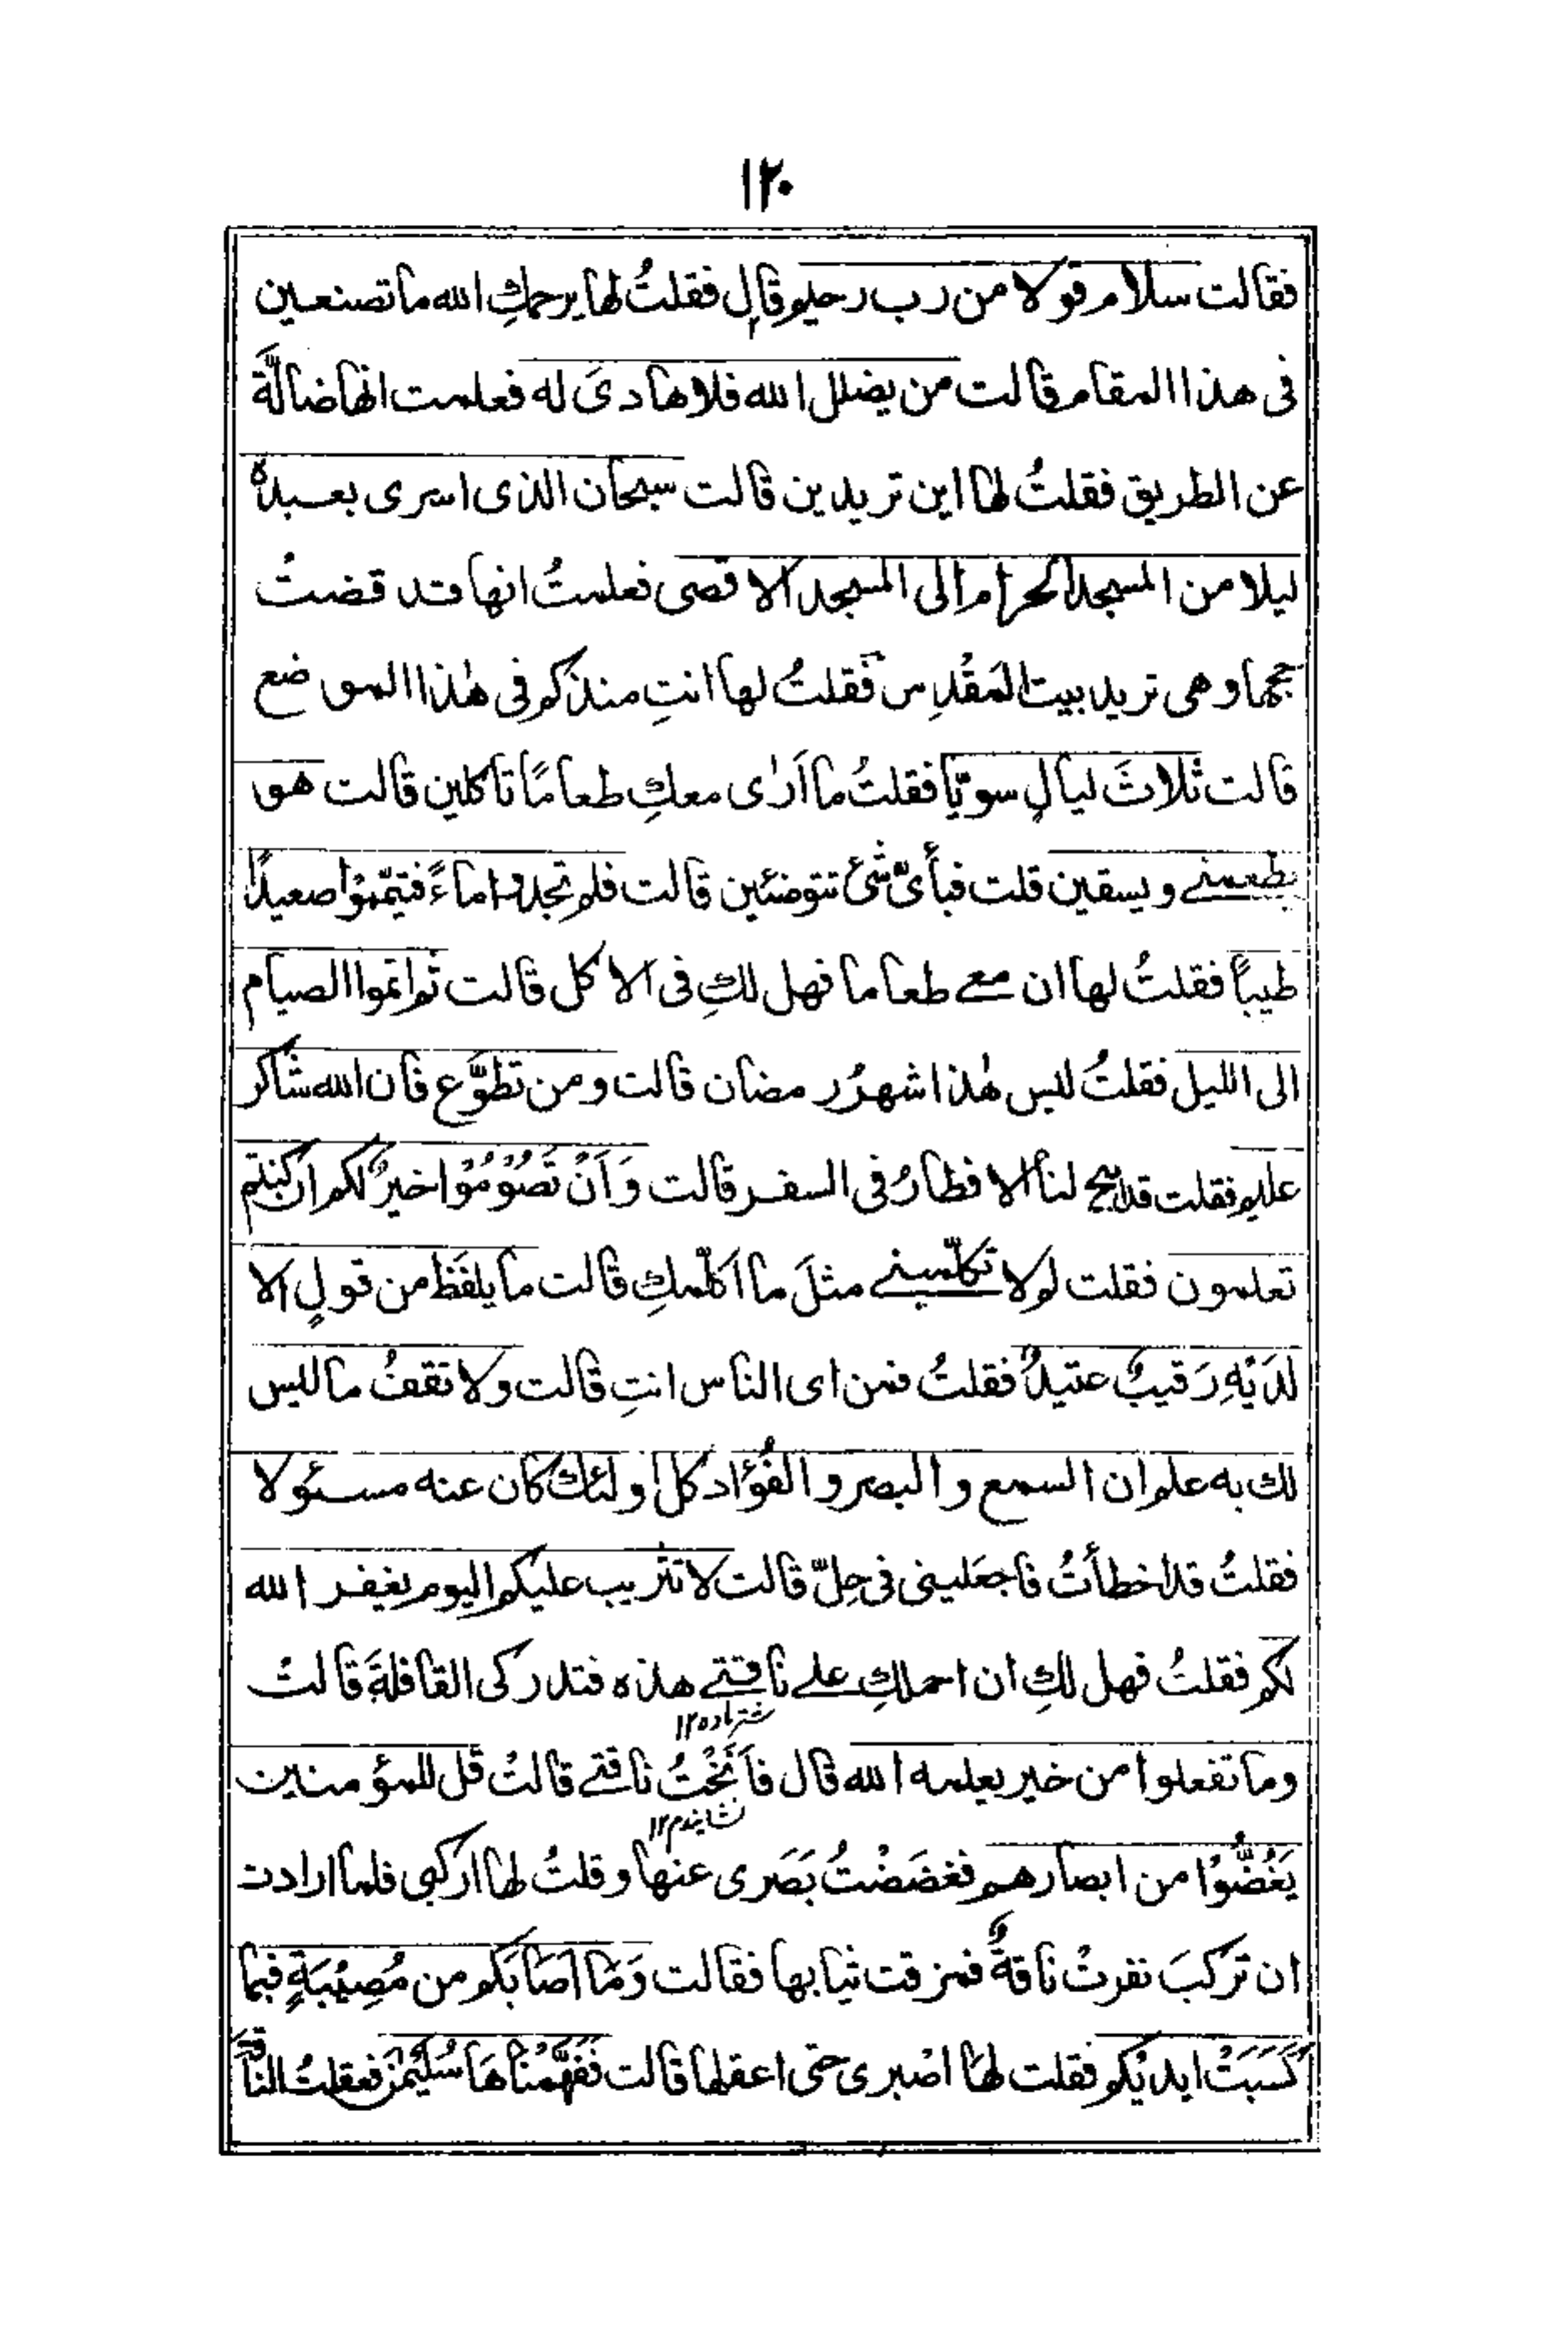 ١٢٠
فقالت سلام قولا من رب رحيم قال فقلتُ لها يرحمكِ الله ما تصنعين
فى هذا المقام قالت من يضلل الله فلا هادىَ له فعلمت انها ضالَّة
عن الطريق فقلتُ لها اين تريدين قالت سبحان الذى اسرى بعبدہ
ليلا من المسجد الحرام الى المسجد الاقصى فعلمتُ انها قد قضتُ
حجها وهى تريد بيت المَقْدِس فَقلتُ لها انتِ منذكم فى هٰذا الموضع
قالت ثلاثَ ليالٍ سويّا فقلتُ ما اَرٰى معكِ طعامًا تاكلين قالت هو
يطعمنے ويسقين قلت فبأىِّ شئ تتوضئين قالت فلم تجدوا ماءً فتيمّموْا صعيدًا
طيبًا فقلتُ لها ان معے طعاما فهل لكِ فى الاكل قالت ثم اتموا الصيام
الى الليل فقلتُ ليس هٰذا شهرُ رمضان قالت ومن تطوَّع فان الله شاكر
عليم فقلت قد ابيح لنا الافطارُ فى السفر قالت وَاَنْ تَصُوْمُوْا خيرٌ لكم ان كنتم
تعلمون فقلت لولا تكلّمينے مثلَ ما اكلّمكِ قالت ما يلفَظ من قولٍ الا
لدَيْهِ رَقيبٌ عتيدٌ فقلتُ فمن اى الناس انتِ قالت ولا تقفُ ما ليس
لك به علم ان السمع والبصر والفُؤاد كل اولئك كان عنه مسئولا
فقلتُ قد اخطأتُ فاجعَلينى فى حِلّ قالت لا تثريب عليكم اليوم يغفر الله
لكم فقلتُ فهل لكِ ان احملكِ علے ناقتے هذه فتدركى القافلةَ قالتْ
شتر ماده ١٢
وما تفعلوا من خير يعلمه الله قال فاَنَخْتُ ناقتے قالتْ قل للمؤمنين
نشاندم ١٢
يَغُضُّوْا من ابصارهم فغضَضْتُ بَصَرى عنها وقلتُ لها اركبى فلما ارادت
ان تركبَ نفرتْ ناقةٌ فمزقت ثيابها فقالت وَمَا اصَابَكم من مُصِيْبَةٍ فبما
كَسَبَتْ ايديْكم فقلت لهَا اصْبرى حتى اعقلها قالت فَفَهَّمْنَاهَا سُلَيْمٰنَ فعقلتُ الناقةَ